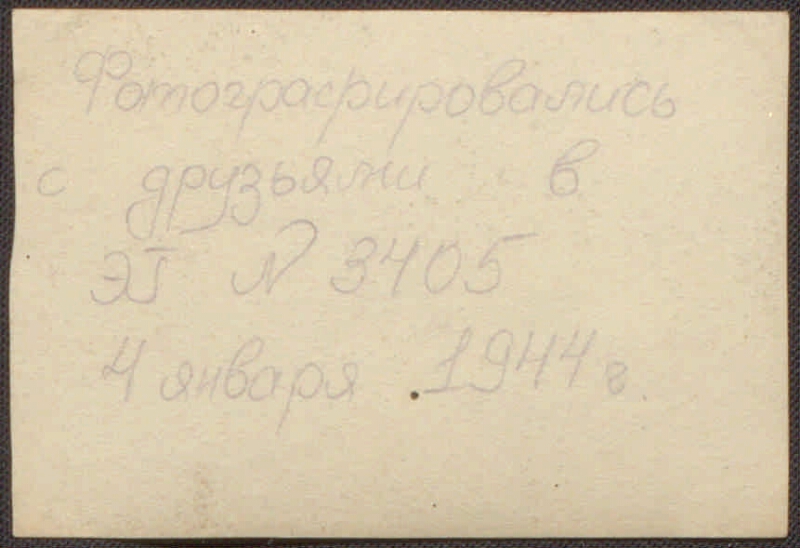 Фотографировались
с друзьями в
ЭГ N 3405
4 января 1944 г.